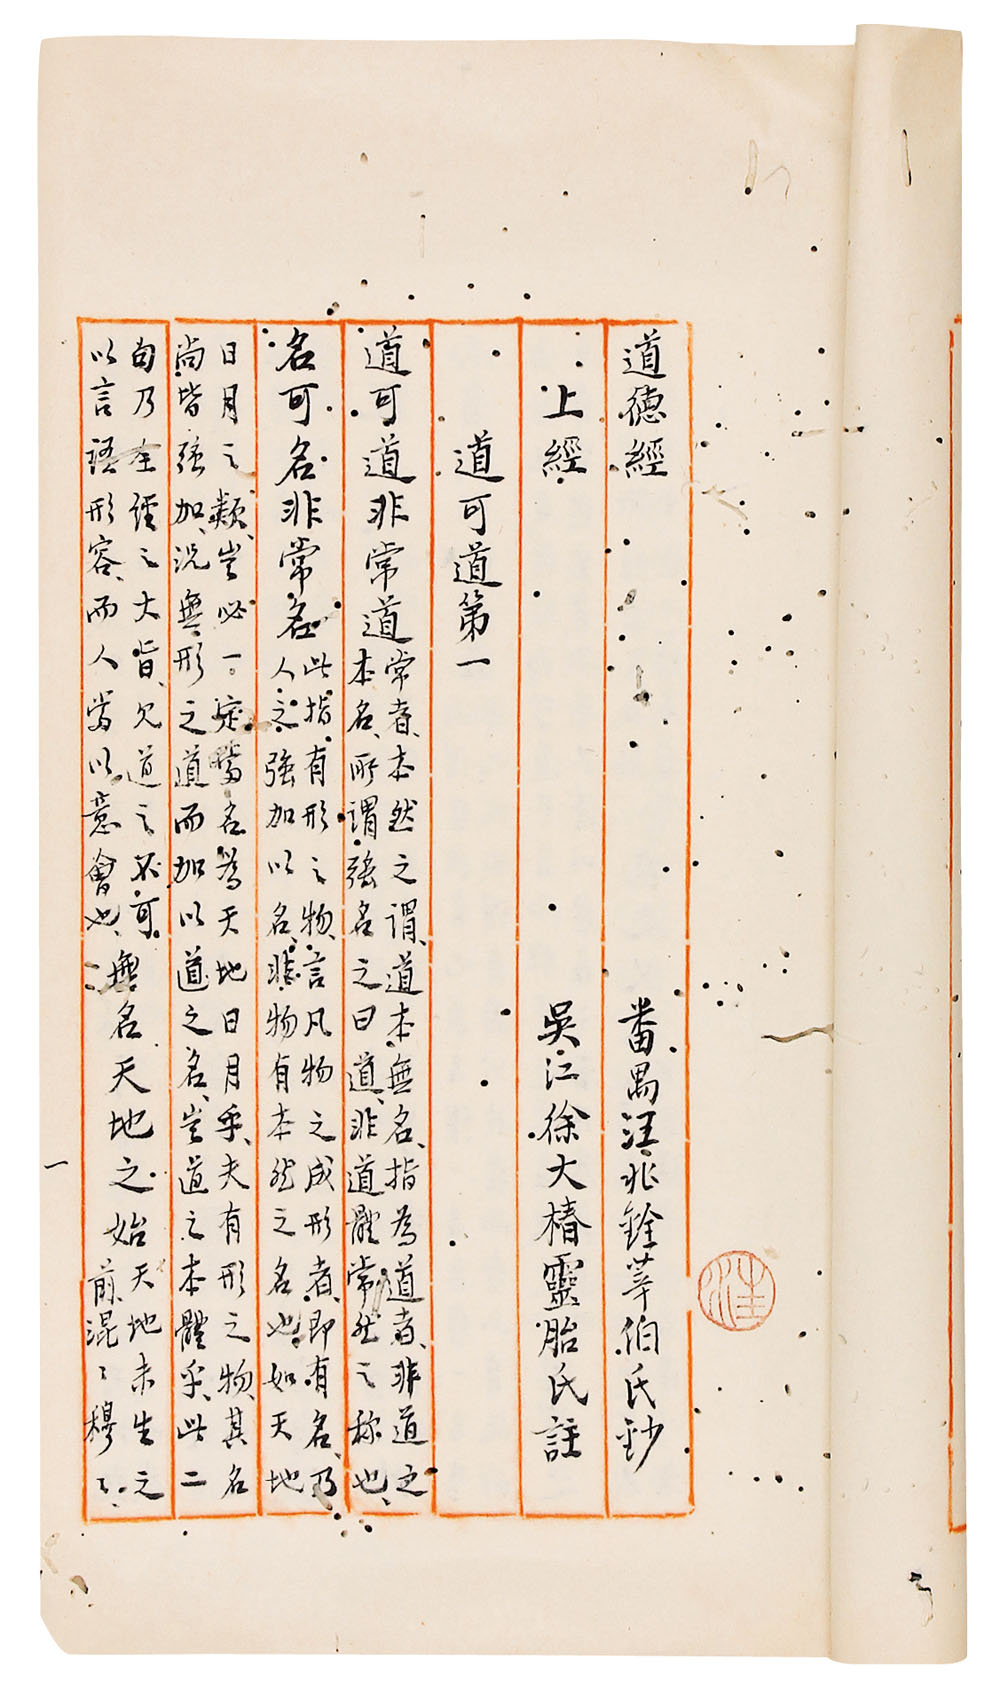 道德經　番禺汪兆銓莘伯氏鈔
上經　吳江徐大椿靈胎氏註
道可道第一
道可道非常道
常者本然之謂道本無名指為道者非道之
本名所謂強名之曰道非道體常然之称也
名可名非常名
此指有形之物言凡物之成形者即有名乃
人之強加以名非物有本然之名也如天地
日月之類豈必一定當名為天地日月乎夫有形之物其名
尚皆強加况無形之道而加以道之名豈道之本體乎此二
句乃全經之大旨欠道之不可
以言語形容而人當以意會也
無名天地之始
天地未生之
前混〻穆〻
一
汪